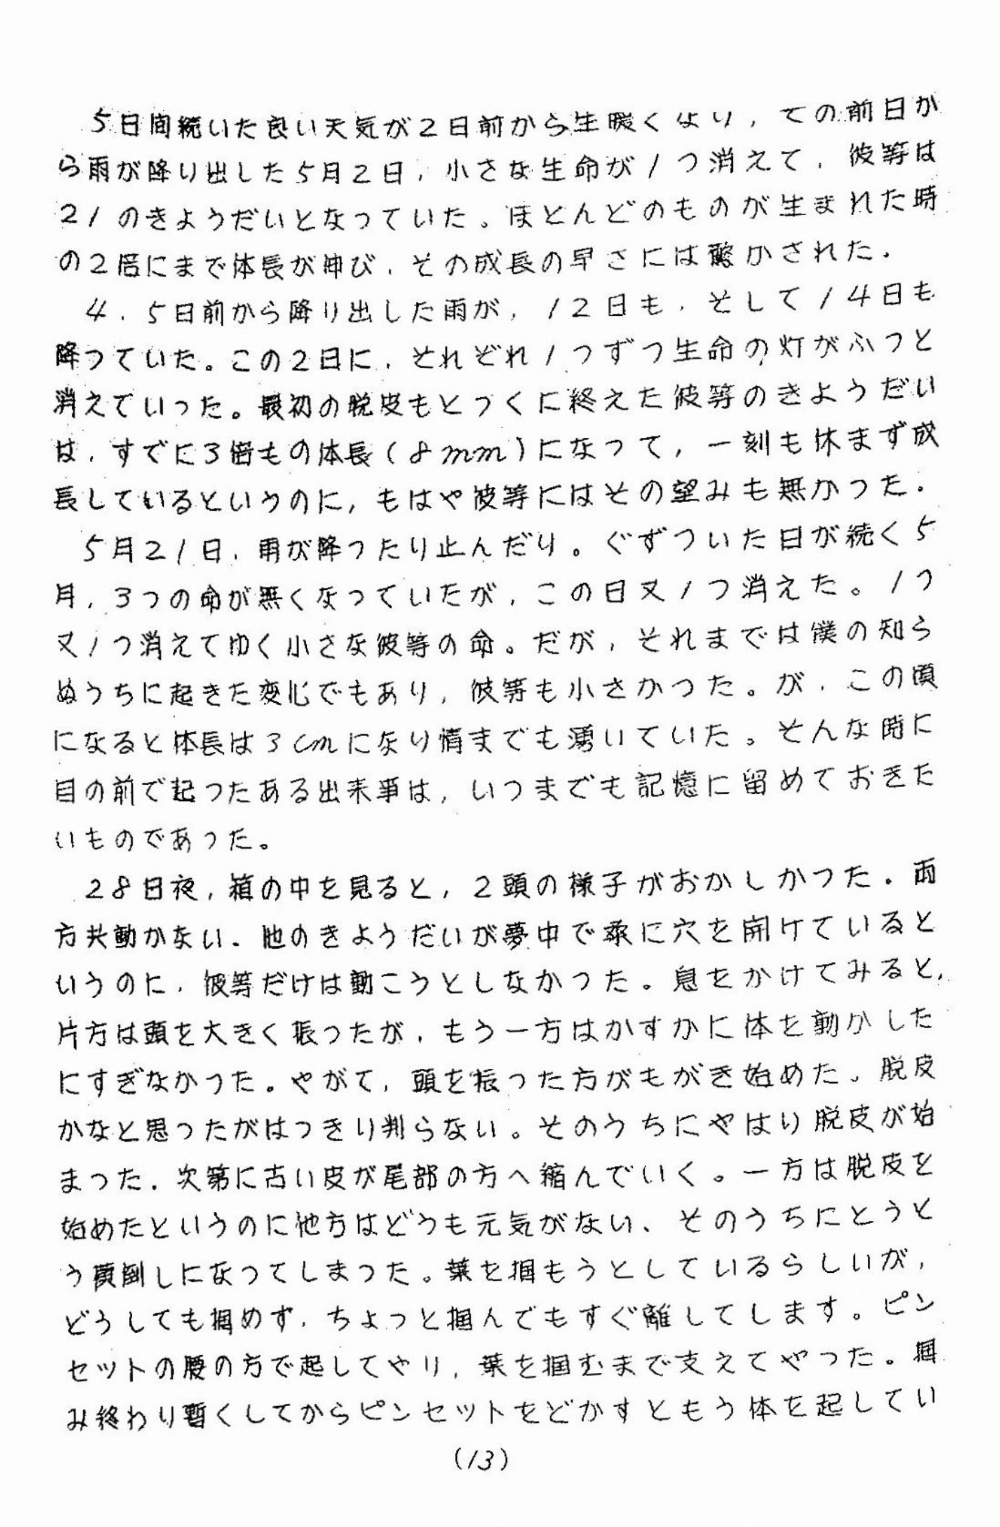 5日間続いた良い天気が2日前から生暖くなり，その前日か
ら雨が降り出した5月2日，小さな生命が1つ消えて，彼等は
21のきようだいとなっていた。ほとんどのものが生まれた時
の2倍にまで体長が伸び，その成長の早さには驚かされた．
4．5日前から降り出した雨が，12日も，そして14日も
降っていた。この2日に，それぞれ1つずつ生命の灯がふっと
消えていった。最初の脱皮もとっくに終えた彼等のきようだい
は，すでに3倍もの体長(8mm)になって，一刻も休まず成
長しているというのに，もはや彼等にはその望みも無かった．
5月21日，雨が降ったり止んだり。ぐずついた日が続く5
月，3つの命が無くなっていたが，この日又1つ消えた。1つ
又1つ消えてゆく小さな彼等の命。だが，それまでは僕の知ら
ぬうちに起きた変化でもあり，彼等も小さかった。が，この頃
になると体長は3cmになり情までも湧いていた。そんな時に
目の前で起ったある出来事は，いつまでも記憶に留めておきた
いものであった。
28日夜，箱の中を見ると，2頭の様子がおかしかった．両
方共動かない．他のきようだいが夢中で桑に穴を開けていると
いうのに，彼等だけは動こうとしなかった。息をかけてみると，
片方は頭を大きく振ったが，もう一方はかすかに体を動かした
にすぎなかった。やがて，頭を振った方がもがき始めた。脱皮
かなと思ったがはっきり判らない。そのうちにやはり脱皮が始
まった．次第に古い皮が尾部の方へ縮んでいく。一方は脱皮を
始めたというのに他方はどうも元気がない、そのうちにとうと
う横倒しになってしまった。葉を掴もうとしているらしいが，
どうしても掴めず，ちょっと掴んでもすぐ離してします。ピン
セットの腰の方で起してやり，葉を掴むまで支えてやった。掴
み終わり暫くしてからピンセットをどかすともう体を起してい
(13)